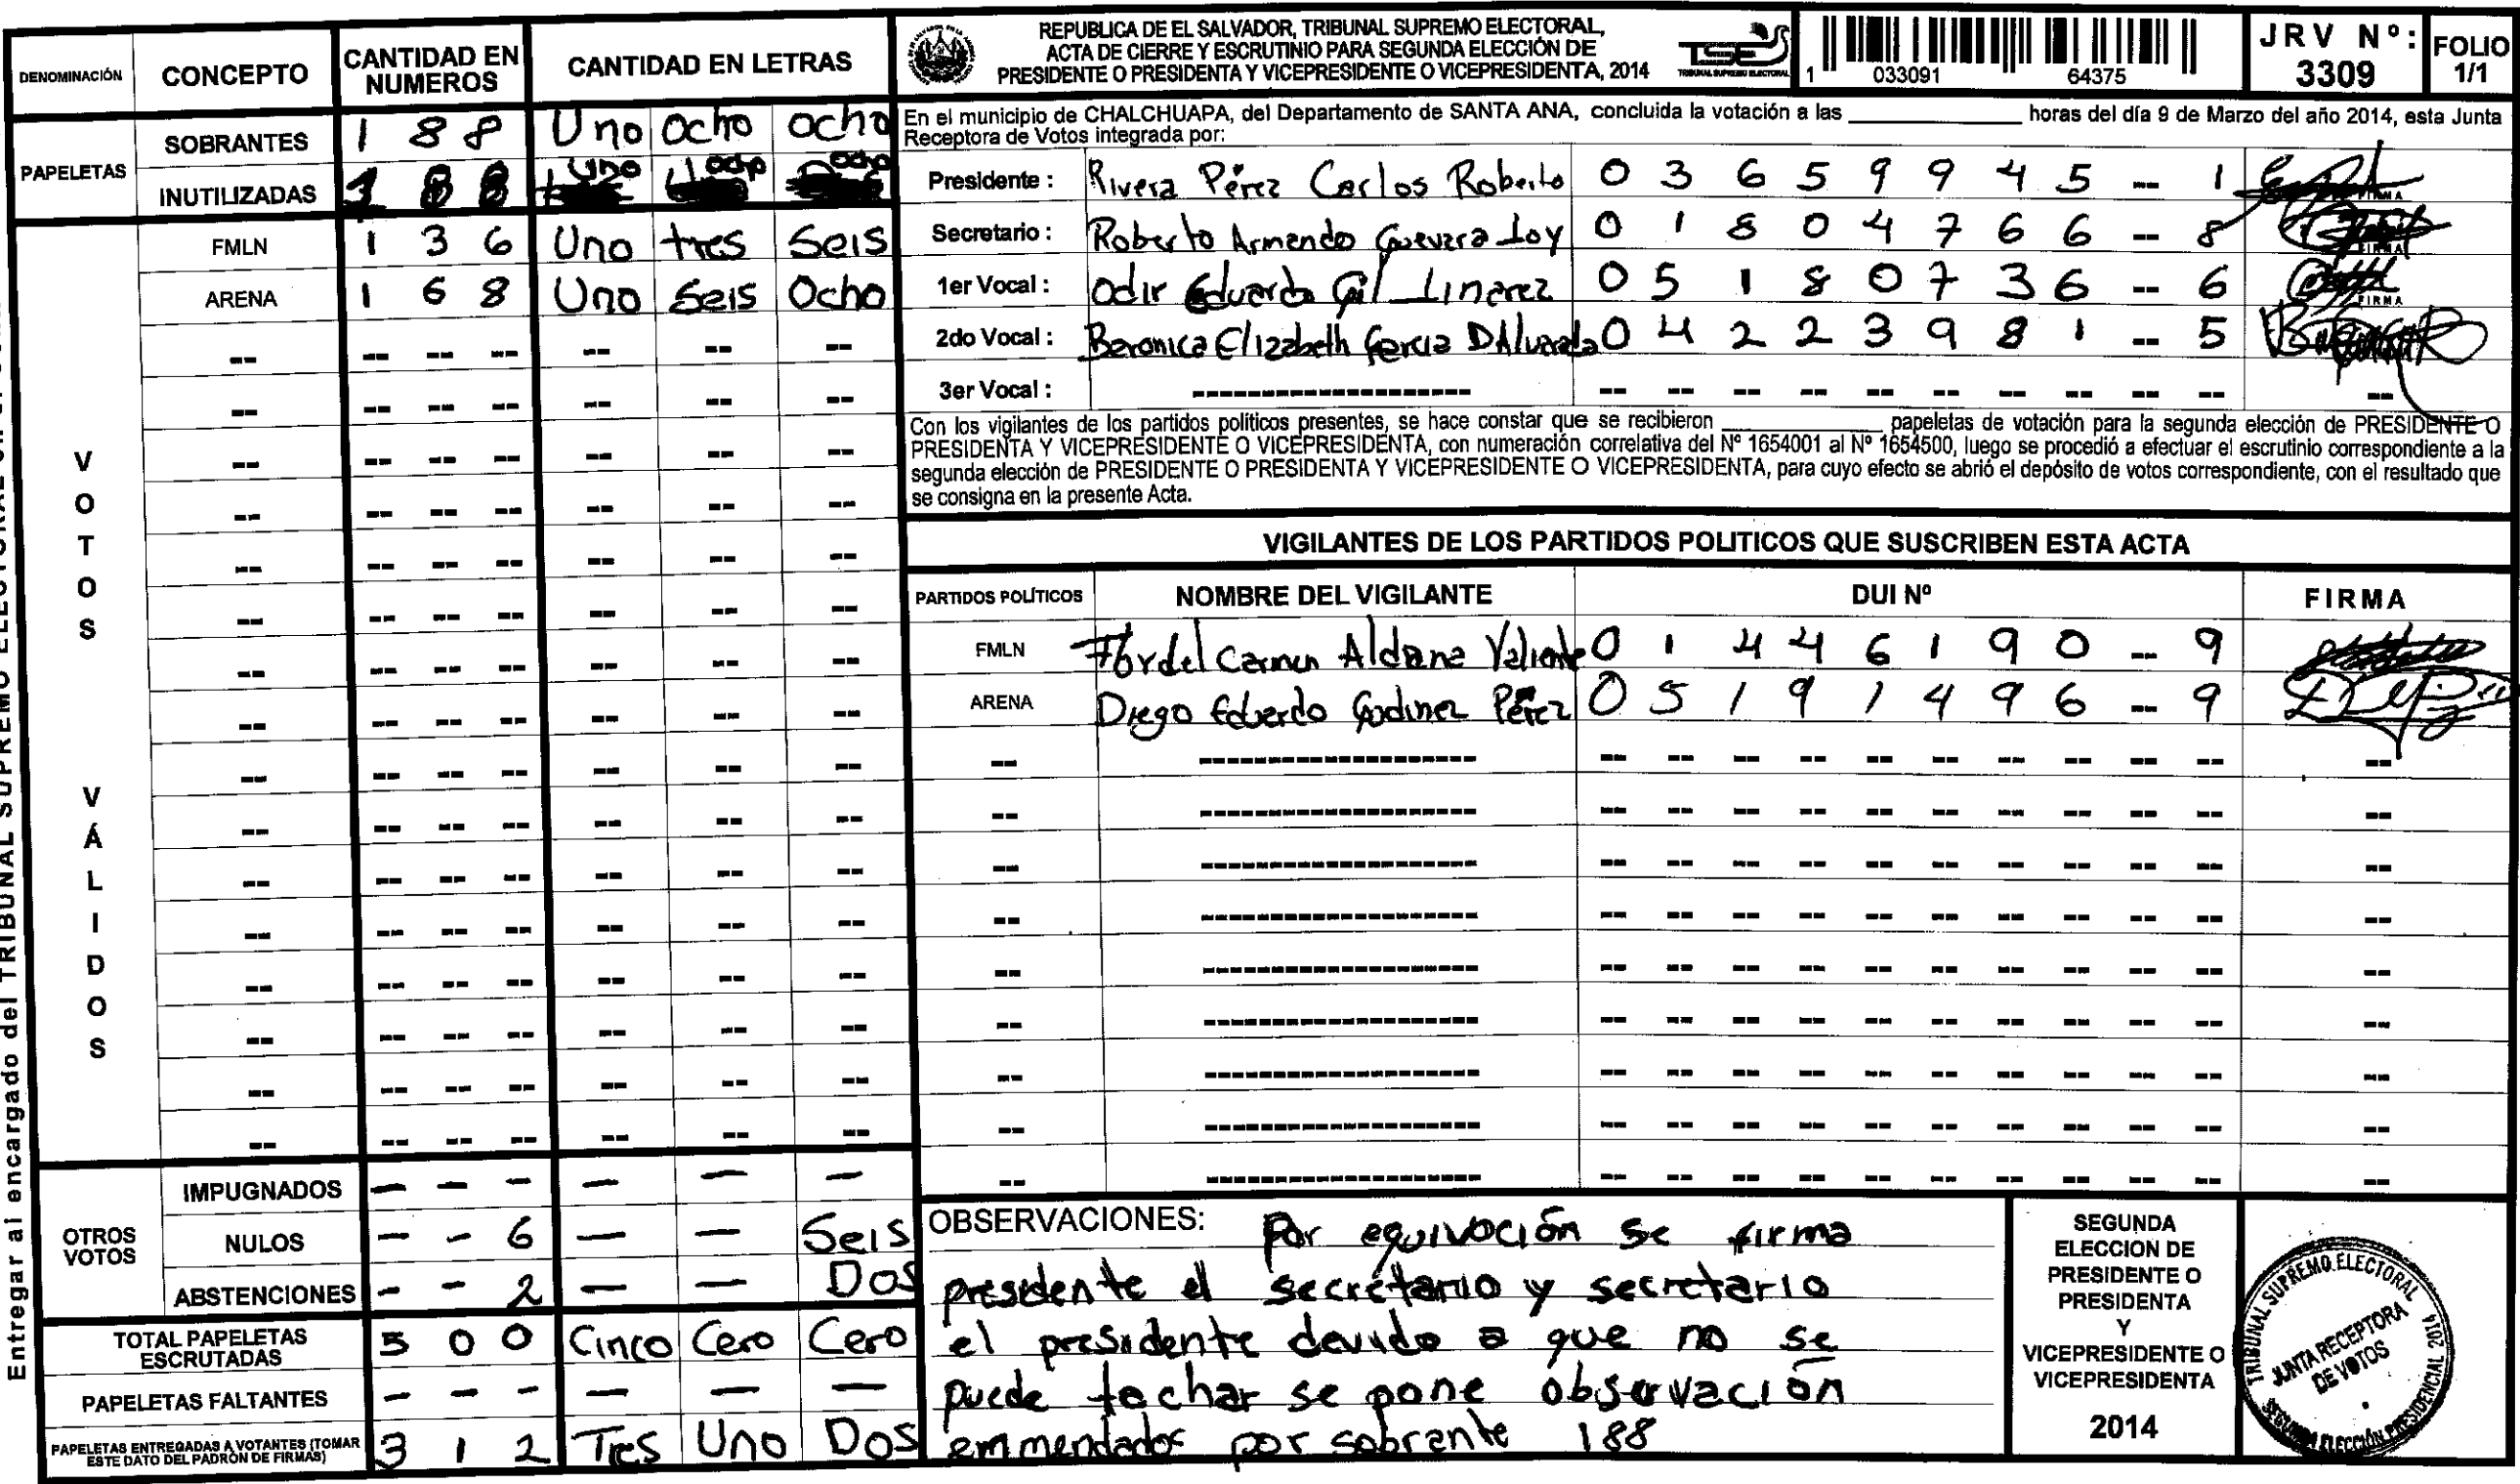 REPUBLICA DE EL SALVADOR, TRIBUNAL SUPREMO ELECTORAL,
ACTA DE CIERRE Y ESCRUTINIO PARA SEGUNDA ELECCIÓN DE
PRESIDENTE O PRESIDENTA Y VICEPRESIDENTE O VICEPRESIDENTA, 2014
TSE
TRIBUNAL SUPREMO ELECTORAL
1 033091 64375
JRV Nº: 3309
FOLIO 1/1
DENOMINACIÓN CONCEPTO CANTIDAD EN NUMEROS CANTIDAD EN LETRAS
PAPELETAS
SOBRANTES 1 8 8 Uno Ocho Ocho
INUTILIZADAS 1 8 8 Uno ocho ocho
VOTOS VÁLIDOS
FMLN 1 3 6 Uno tres Seis
ARENA 1 6 8 Uno Seis Ocho
OTROS VOTOS
IMPUGNADOS – – – – – –
NULOS – – 6 – – Seis
ABSTENCIONES – – 2 – – Dos
TOTAL PAPELETAS ESCRUTADAS 5 0 0 Cinco Cero Cero
PAPELETAS FALTANTES – – – – – –
PAPELETAS ENTREGADAS A VOTANTES (TOMAR ESTE DATO DEL PADRÓN DE FIRMAS) 3 1 2 Tres Uno Dos
Entregar al encargado del TRIBUNAL SUPREMO ELECTORAL
En el municipio de CHALCHUAPA, del Departamento de SANTA ANA, concluida la votación a las ____ horas del día 9 de Marzo del año 2014, esta Junta
Receptora de Votos integrada por:
Presidente : Rivera Pérez Carlos Roberto 0 3 6 5 9 9 4 5 -- 1 FIRMA
Secretario : Roberto Armando Guevara Loy 0 1 8 0 4 7 6 6 -- 8 FIRMA
1er Vocal : Odir Eduardo Gil Linarez 0 5 1 8 0 7 3 6 -- 6 FIRMA
2do Vocal : Beronica Elizabeth Garcia DAlvarado 0 4 2 2 3 9 8 1 -- 5
3er Vocal :
Con los vigilantes de los partidos políticos presentes, se hace constar que se recibieron ____ papeletas de votación para la segunda elección de PRESIDENTE O
PRESIDENTA Y VICEPRESIDENTE O VICEPRESIDENTA, con numeración correlativa del Nº 1654001 al Nº 1654500, luego se procedió a efectuar el escrutinio correspondiente a la
segunda elección de PRESIDENTE O PRESIDENTA Y VICEPRESIDENTE O VICEPRESIDENTA, para cuyo efecto se abrió el depósito de votos correspondiente, con el resultado que
se consigna en la presente Acta.
VIGILANTES DE LOS PARTIDOS POLITICOS QUE SUSCRIBEN ESTA ACTA
PARTIDOS POLÍTICOS NOMBRE DEL VIGILANTE DUI Nº FIRMA
FMLN Flor del Carmen Aldana Valiente 0 1 4 4 6 1 9 0 -- 9
ARENA Diego Eduardo Godinez Pérez 0 5 1 9 1 4 9 6 -- 9
OBSERVACIONES: Por equivoción se firma
presidente el secretario y secretario
el presidente devido a que no se
puede tachar se pone observación
emmendados por sobrante 188
SEGUNDA
ELECCION DE
PRESIDENTE O
PRESIDENTA
Y
VICEPRESIDENTE O
VICEPRESIDENTA
2014
TRIBUNAL SUPREMO ELECTORAL
JUNTA RECEPTORA
DE VOTOS
SEGUNDA ELECCIÓN PRESIDENCIAL 2014